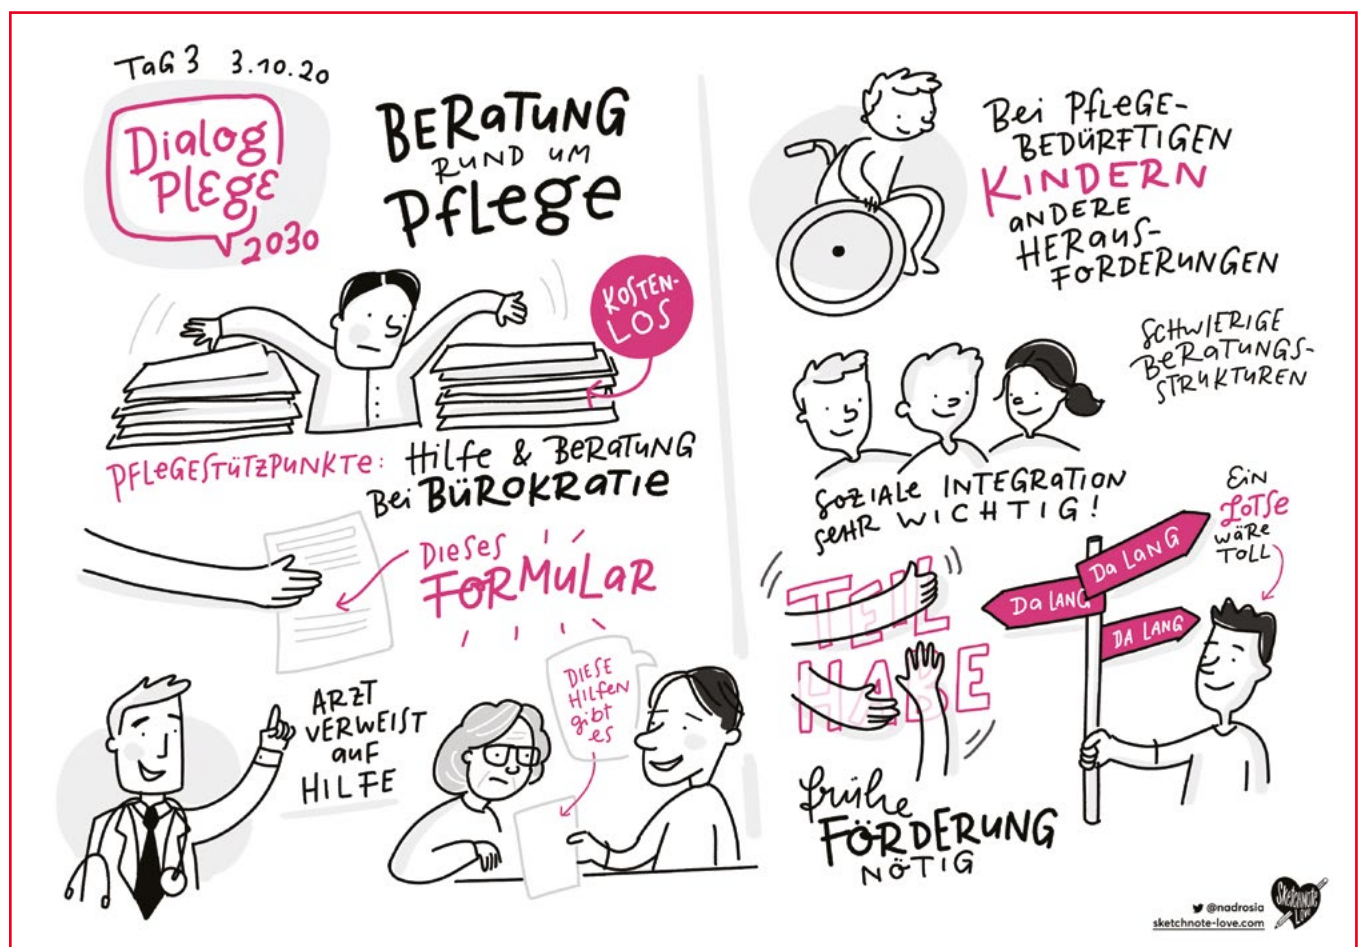 TaG 3 3.10.20
Dialog
PLEGE
2030
BERaTUNG
RUND UM
PfLege
KOSTEN-
LOS
PFLEGESTÜTZPUNKTE: Hilfe & BERaTUNG
Bei BÜROKRaTIE
DIESES
FORMULaR
ARZT
VERWEIST
auf
HILFE
DIESE
HILFEN
gibt
es
Bei PFLEGE-
BEDÜRFTIGEN
KINDERN
aNDERE
HERaUS-
FORDERUNGEN
SCHWIERIGE
BERaTUNGS-
STRUKTUREN
SOZIALE INTEGRATION
SEHR WICHTIG!
EIN
LOTSE
WÄRE
TOLL
Da LANG
Da LANG
DA LANG
TEIL
HABE
frühe
FÖRDERUNG
NÖTIG
@nadrosia
sketchnote-love.com
Sketchnote
Love